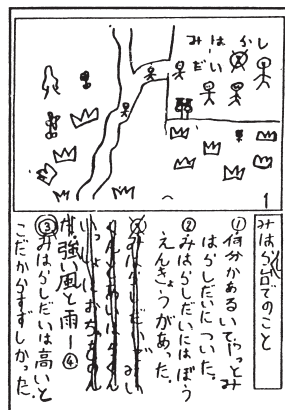 みはらし
だい
1
みはらし台でのこと
① 何分かあるいてやっとみ
はらしだいについた。
② みはらしだいにはぼう
えんきょうがあった。
強い風と雨ー④
③ みはらしだいは高いと
こだからすずしかった。